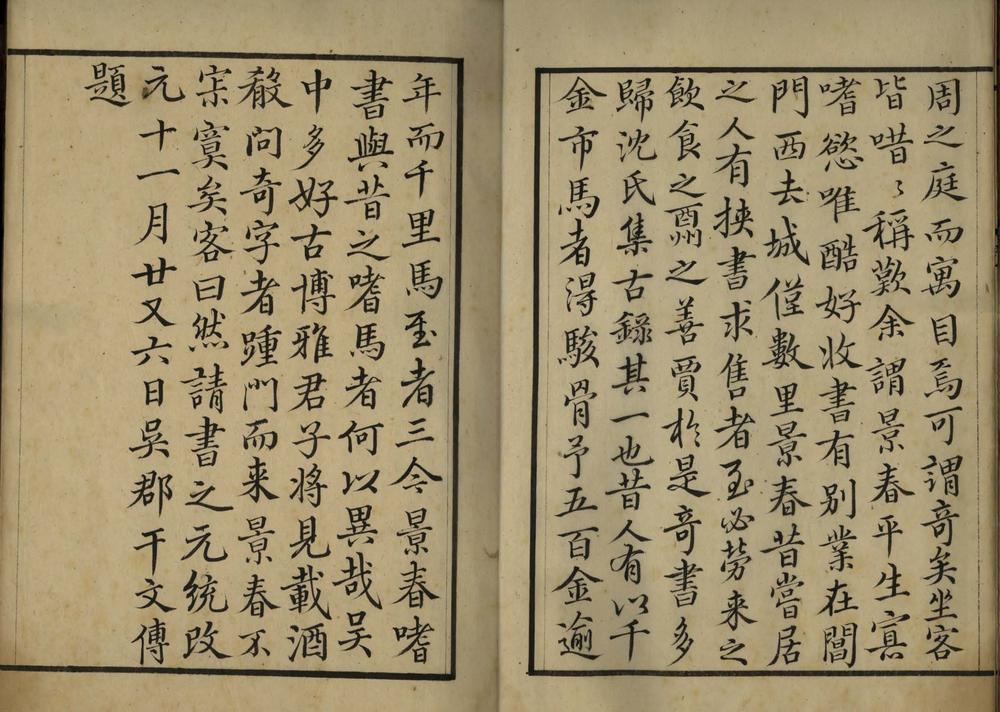 周之庭而寓目焉可謂竒矣坐客
皆唶〻稱歎余謂景春平生寡
嗜慾唯酷好收書有别業在閶
門西去城僅數里景春昔嘗居
之人有挾書求售者至必勞来之
飲食之酬之善賈於是竒書多
歸沈氏集古錄其一也昔人有以千
金市馬者得駿骨予五百金逾
年而千里馬至者三今景春嗜
書與昔之嗜馬者何以異哉吴
中多好古博雅君子将見載酒
殽問奇字者踵門而来景春不
寂寞矣客曰然請書之元統改
元十一月廿又六日吴郡干文傳
題